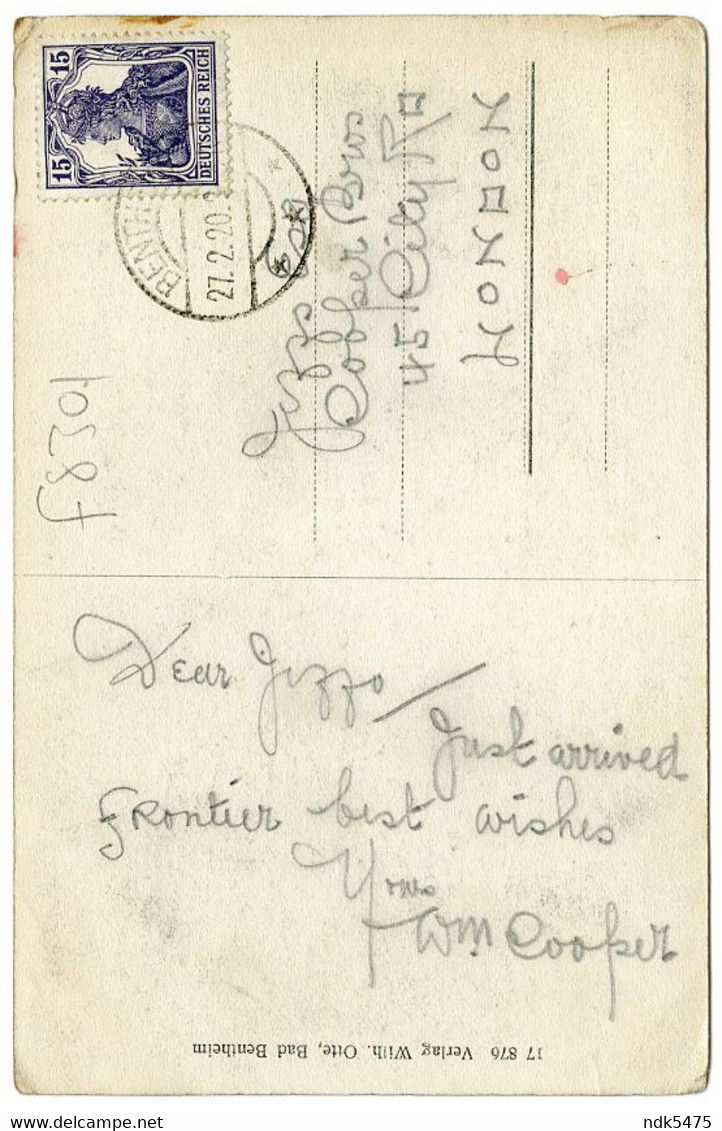 15
15
DEUTSCHES REICH
BENTH
27.2.20.
Jizzo Esq
Cooper Bros
45 City Rd
LONDON
F8201
Dear Jizzo
Just arrived
Frontier best wishes
Yours
Wm Cooper
17 876 Verlag Wilh. Otte, Bad Bentheim
ndk5475